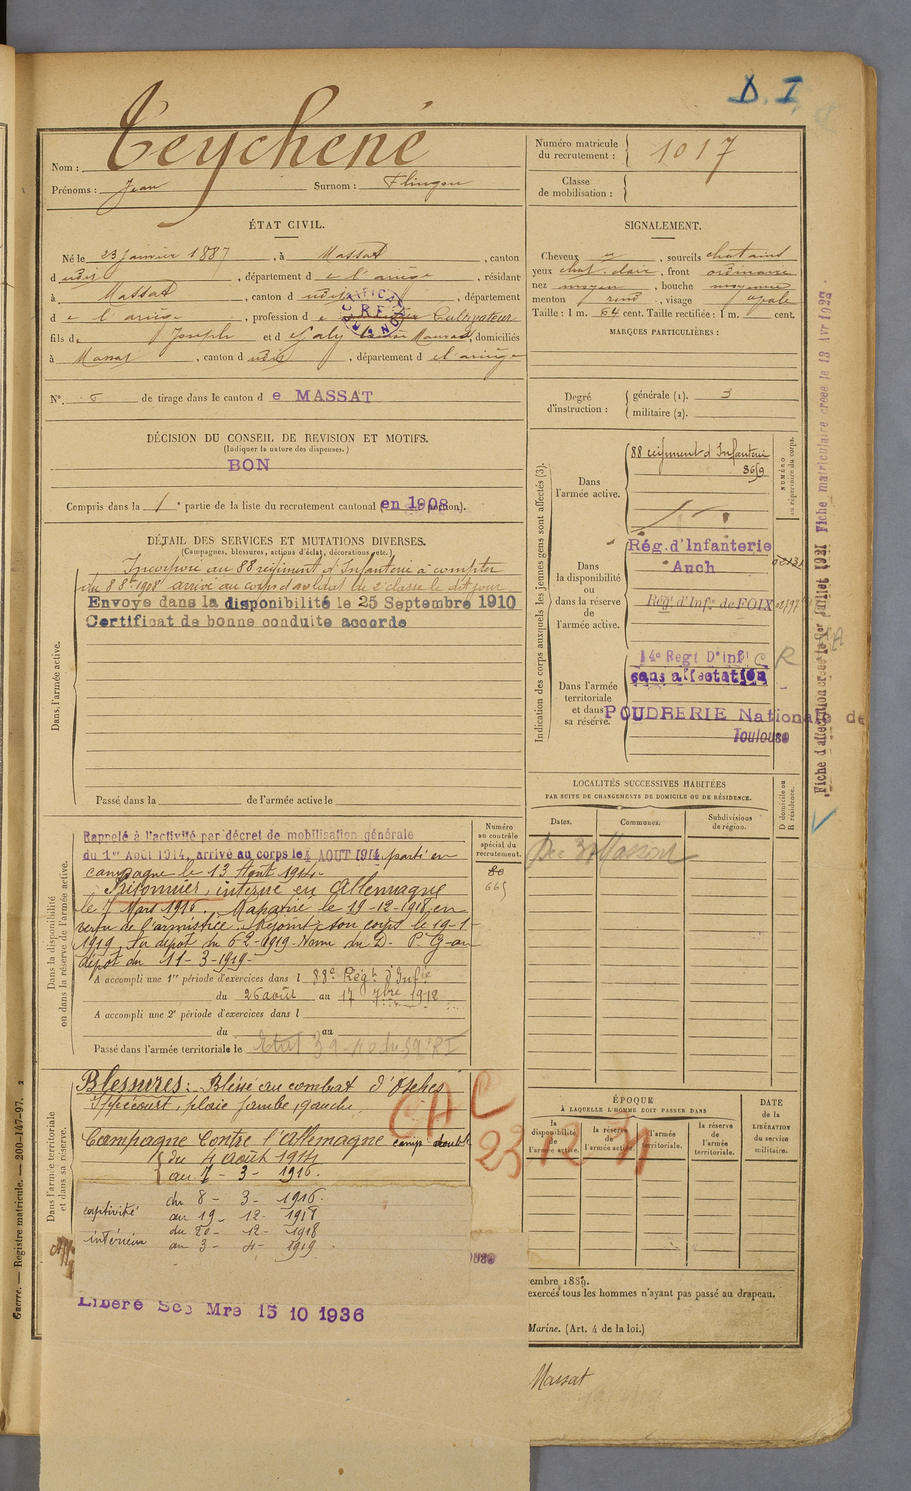 D. I
Teychené
Nom :
Prénoms : Jean Surnom : Flingou
Numéro matricule du recrutement : 1017
Classe de mobilisation :
ÉTAT CIVIL.
Né le 23 janvier 1887, à Massat, canton
d udit, département d e l'ariège, résidant
à Massat, canton d udit, département
d e l'ariège, profession d e Cultivateur
fils d e Joseph et d e Galy Maurad, domiciliés
à Massat, canton d udit, département d e l'ariège
N° 6 de tirage dans le canton d e MASSAT
SIGNALEMENT.
Cheveux , sourcils chatains
yeux chat. clair, front ordinaire
nez moyen, bouche moyenne
menton rond, visage ovale
Taille : 1 m. 64 cent. Taille rectifiée : 1 m. cent.
MARQUES PARTICULIÈRES :
Degré d'instruction :
générale (1). 3
militaire (2).
DÉCISION DU CONSEIL DE REVISION ET MOTIFS.
(Indiquer la nature des dispenses.)
BON
Compris dans la 1e partie de la liste du recrutement cantonal en 1908
DÉTAIL DES SERVICES ET MUTATIONS DIVERSES.
(Campagnes, blessures, actions d'éclat, décorations, etc.)
Dans l'armée active.
Incorporé au 88 régiment d'Infanterie à compter
du 8 8bre 1908 arrivé au corps et soldat de 2e classe le dit jour
Envoyé dans la disponibilité le 25 Septembre 1910
Certificat de bonne conduite accordé
Passé dans la de l'armée active le
Indication des corps auxquels les jeunes gens sont affectés (3).
NUMÉRO au répertoire du corps.
Dans l'armée active.
88 régiment d'Infanterie
8659
Dans la disponibilité ou dans la réserve de l'armée active.
Rég. d'Infanterie
Auch
Rég. d'Inf. de FOIX
Dans l'armée territoriale et dans sa réserve.
14e Regt D'Inf
sans affectation
POUDRERIE Nationale de
Toulouse
Fiche matriculaire créée le 13 Avr 1933
Fiche d'affectation créée le 1er Juillet 1931
LOCALITÉS SUCCESSIVES HABITÉES
PAR SUITE DE CHANGEMENTS DE DOMICILE OU DE RÉSIDENCE.
Dates. Communes. Subdivisions de région. D domicile ou R résidence.
Massat
Dans la disponibilité ou dans la réserve de l'armée active.
Numéro au contrôle spécial du recrutement.
665
Rappelé à l'activité par décret de mobilisation générale
du 1er Août 1914, arrivé au corps le 4 AOUT 1914 parti en
campagne le 13 Aout 1914.
Prisonnier, interné en Allemagne
le 7 Mars 1916. Rapatrié le 19-12-1918 en
vertu de l'armistice. Rejoint son corps le 19-1-
1919. Au dépot du 6-2-1919. Venu du D. P. G au
dépot du 11-3-1919
A accompli une 1re période d'exercices dans l 88e Régt d'Inftie
du 26 août au 17 7bre 1912
A accompli une 2e période d'exercices dans l
du au
Passé dans l'armée territoriale le
Dans l'armée territoriale et dans sa réserve.
Blessures : Blessé au combat d'Osches
Ippécourt, plaie jambe gauche
Campagne Contre l'Allemagne camp. double
du 4 août 1914
au 7 - 3 - 1916
captivité du 8 - 3 - 1916.
au 19 - 12 - 1918
intérieur du 20 - 12 - 1918
au 3 - 4 - 1919
Libéré Ser Mre 15 10 1936
CAC
23 12 31
ÉPOQUE
À LAQUELLE L'HOMME DOIT PASSER DANS
la disponibilité de l'armée active. la réserve de l'armée active. l'armée territoriale. la réserve de l'armée territoriale.
DATE de la LIBÉRATION du service militaire.
vembre 1889.
exercés tous les hommes n'ayant pas passé au drapeau.
Marine. (Art. 4 de la loi.)
Massat
Guerre. — Registre matricule. — 200-147-97. 2